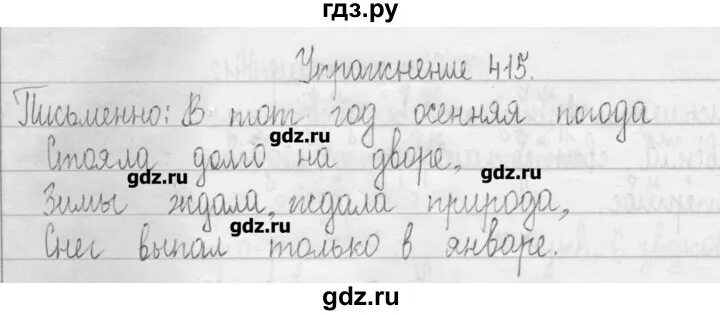 гдз.ру
Упражнение 415.
Письменно: В тот год осенняя погода
gdz.ru
Стояла долго на дворе,
gdz.ru
gdz.ru
Зимы ждала, ждала природа,
gdz.ru
Снег выпал только в январе.
gdz.ru